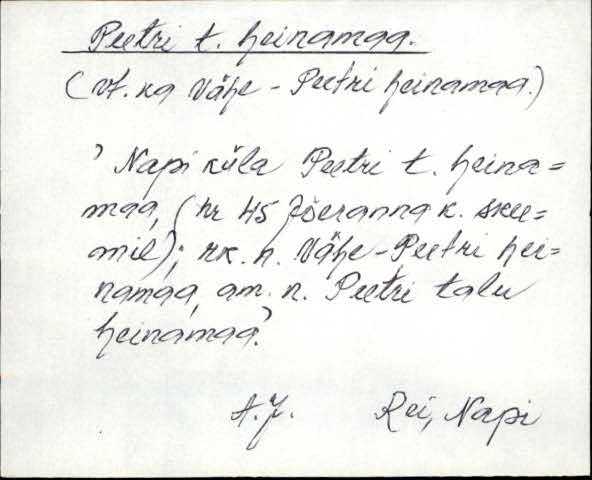 Peetri t. heinamaa.
(vt. ka Vähe-Peetri heinamaa.)
' Napi küla Peetri t. heina=
maa, (nr 45 Jõeranna k. skee=
mil); rk. n. Vähe-Peetri hei=
namaa, am. n. Peetri talu
heinamaa.'
A.J. Rei, Napi